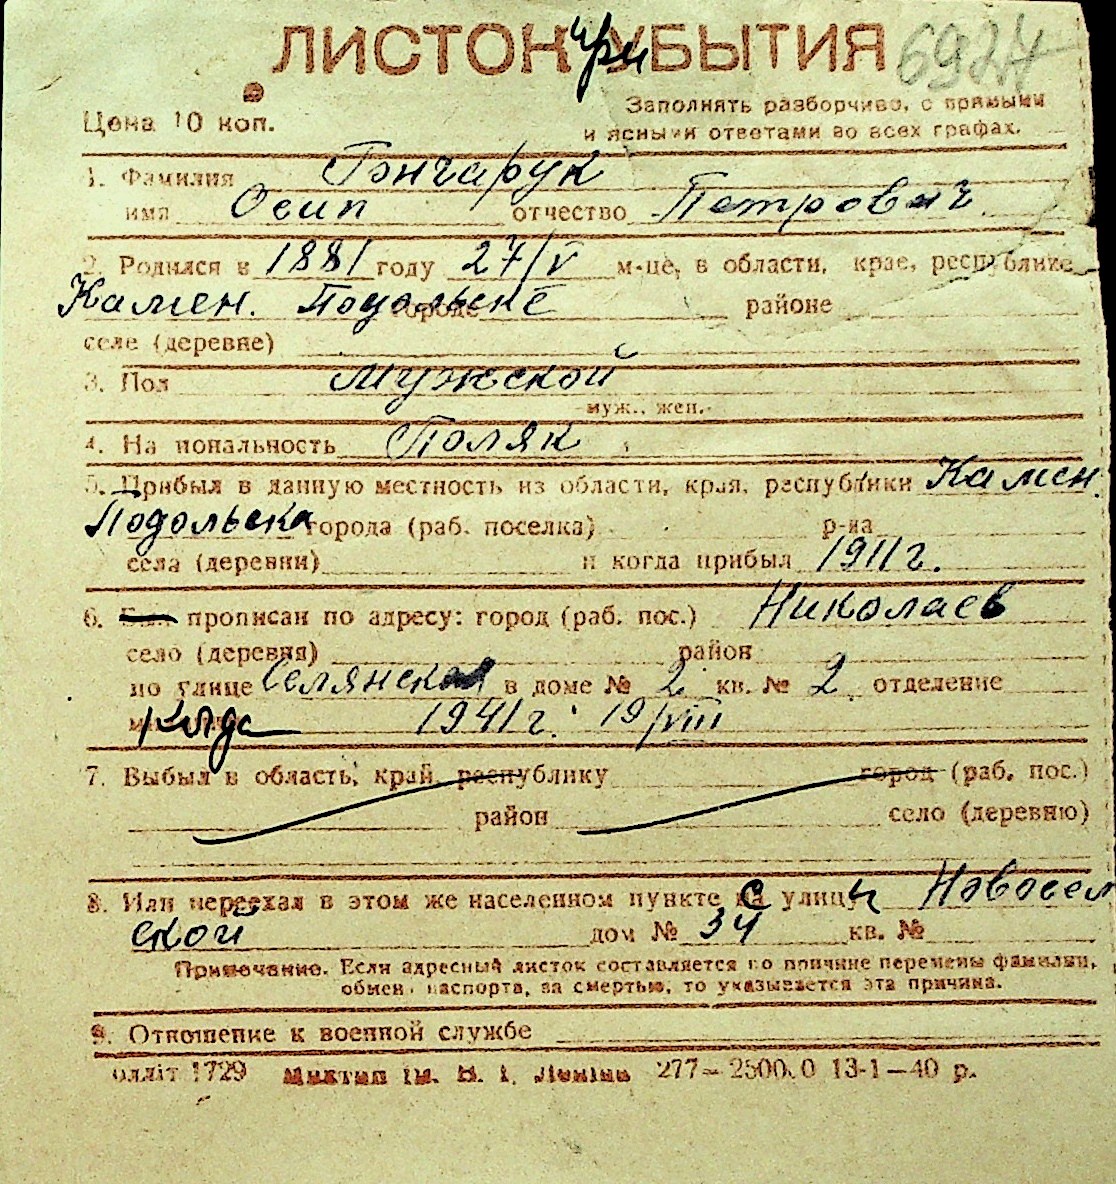 ЛИСТОК при УБЫТИЯ 6924
Цена 10 коп.
Заполнять разборчиво, с прямыми
и ясными ответами во всех графах.
1. Фамилия Гончарук
имя Осип отчество Петрович
2. Родился в 1881 году 27/V м-це, в области, крае, республике
Камен. Подольске городе районе
селе (деревне)
3. Пол Мужской
муж., жен.
4. Национальность Поляк
5. Прибыл в данную местность из области, края, республики Камен.
Подольска города (раб. поселка) р-на
села (деревни) и когда прибыл 1911 г.
6. Был прописан по адресу: город (раб. пос.) Николаев
село (деревня) район
по улице Селянская в доме № 2 кв. № 2 отделение
Когда 1941 г. 19/VIII
7. Выбыл в область, край, республику город (раб. пос.)
район село (деревню)
8. Или переехал в этом же населенном пункте с улицы Новосел
ской дом № 34 кв. №
Примечание. Если адресный листок составляется по причине перемены фамилии,
обмен паспорта, за смертью, то указывается эта причина.
9. Отношение к военной службе
олліт 1729 ім. В. І. Леніна 277—2500.0 13-1—40 р.